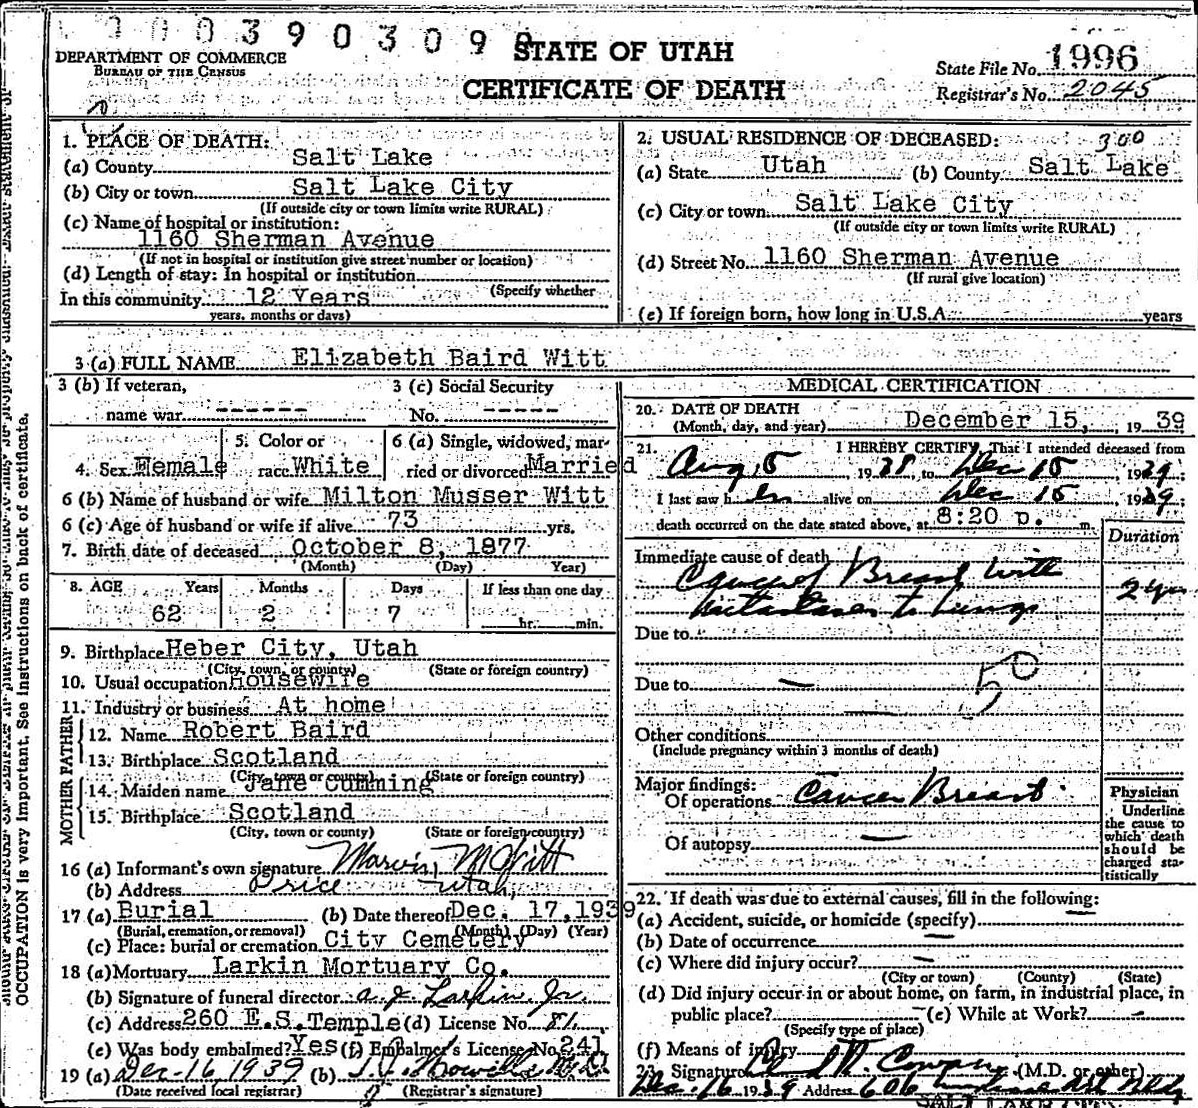 0003903090
DEPARTMENT OF COMMERCE
BUREAU OF THE CENSUS
STATE OF UTAH
CERTIFICATE OF DEATH
State File No. 1996
Registrar's No. 2045
1. PLACE OF DEATH:
(a) County Salt Lake
(b) City or town Salt Lake City
(If outside city or town limits write RURAL)
(c) Name of hospital or institution:
1160 Sherman Avenue
(If not in hospital or institution give street number or location)
(d) Length of stay: In hospital or institution
(Specify whether
In this community 12 Years
years, months or days)
2. USUAL RESIDENCE OF DECEASED: 300
(a) State Utah (b) County Salt Lake
(c) City or town Salt Lake City
(If outside city or town limits write RURAL)
(d) Street No. 1160 Sherman Avenue
(If rural give location)
(e) If foreign born, how long in U.S.A. years
3 (a) FULL NAME Elizabeth Baird Witt
3 (b) If veteran, name war ------
3 (c) Social Security No. -----
4. Sex Female
5. Color or race White
6 (a) Single, widowed, married or divorced Married
6 (b) Name of husband or wife Milton Musser Witt
6 (c) Age of husband or wife if alive 73 yrs.
7. Birth date of deceased October 8, 1877
(Month) (Day) Year)
8. AGE Years Months Days If less than one day
62 2 7 hr. min.
9. Birthplace Heber City, Utah
(City, town, or county) (State or foreign country)
10. Usual occupation Housewife
11. Industry or business At home
FATHER
12. Name Robert Baird
13. Birthplace Scotland
(City, town or county) (State or foreign country)
MOTHER
14. Maiden name Jane Cumming
15. Birthplace Scotland
(City, town or county) (State or foreign country)
16 (a) Informant's own signature Marvin M Witt
(b) Address Price Utah,
17 (a) Burial (b) Date thereof Dec. 17, 1939
(Burial, cremation, or removal) (Month) (Day) (Year)
(c) Place: burial or cremation City Cemetery
18 (a) Mortuary Larkin Mortuary Co.
(b) Signature of funeral director A. J. Larkin Jr.
(c) Address 260 E.S. Temple (d) License No. 81
(e) Was body embalmed? Yes (f) Embalmer's License No. 241
19 (a) Dec-16, 1939 (b)
(Date received local registrar) (Registrar's signature)
MEDICAL CERTIFICATION
20. DATE OF DEATH
(Month, day, and year) December 15, 1939
21. I HEREBY CERTIFY, That I attended deceased from
Aug 5 1938, to Dec 15 1939;
I last saw her alive on Dec 15 1939;
death occurred on the date stated above, at 8:20 p. m.
Duration
Immediate cause of death
Cancer of Breast with
metastases to lungs
2 yrs
Due to
Due to — 50
Other conditions
(Include pregnancy within 3 months of death)
Major findings:
Of operations Cancer Breast
Of autopsy —
Physician
Underline
the cause to
which death
should be
charged sta-
tistically
22. If death was due to external causes, fill in the following:
(a) Accident, suicide, or homicide (specify) —
(b) Date of occurrence —
(c) Where did injury occur? —
(City or town) (County) (State)
(d) Did injury occur in or about home, on farm, in industrial place, in
public place? — (e) While at Work? —
(Specify type of place)
(f) Means of injury
23. Signature (M.D. or other)
Dec. 16 1939 Address 606 Bldg
SALT LAKE CITY
OCCUPATION is very important. See instructions on back of certificate.